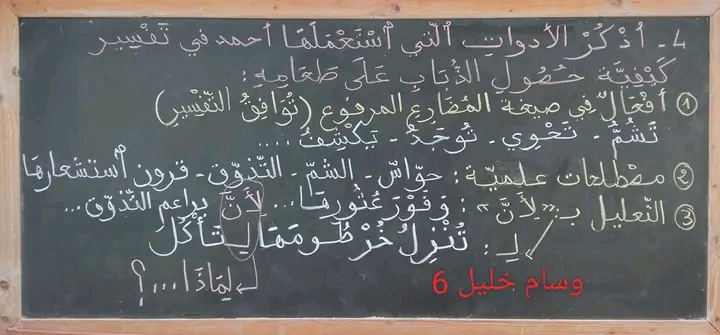 4 - أُذْكُرْ الأدواتِ الّتي اسْتَعْمَلَهَا أحمد في تَفْسِير
كَيْفِيَّة حُصُولِ الذُّبَابِ عَلَى طَعَامِهِ :
① أَفْعَالٌ في صيغة المُضَارِعِ المرفوع (تُوَافِقُ التَّفْسِير)
تَشُمُّ - تَحْوِي - تُوجَدُ - تَكْشِفُ ....
② مصْطلحات علميّة : حَوَاسّ - الشّمّ - التّذوّق - قرون استشعارها
③ التّعليل بـ: «لِأَنَّ» : وَفَوْرَ عُثُورِهَا ... لِأَنَّ براعم التّذوّق ...
لِـ : تُنْزِلُ خُرْطُومَهَا لِـتَأْكُل
لِمَاذَا....؟
وسام خليل 6